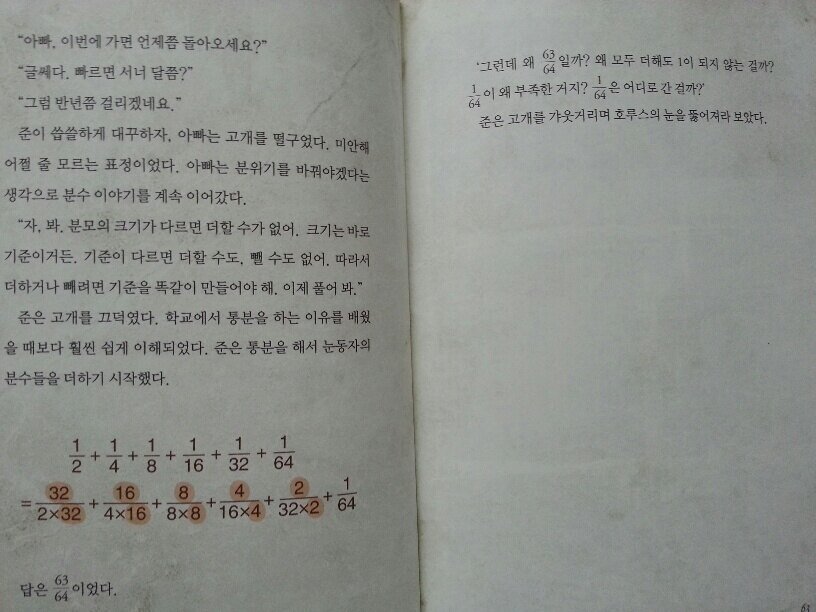 “아빠, 이번에 가면 언제쯤 돌아오세요?”
“글쎄다. 빠르면 서너 달쯤?”
“그럼 반년쯤 걸리겠네요.”
준이 씁쓸하게 대꾸하자, 아빠는 고개를 떨구었다. 미안해
어쩔 줄 모르는 표정이었다. 아빠는 분위기를 바꿔야겠다는
생각으로 분수 이야기를 계속 이어갔다.
“자, 봐. 분모의 크기가 다르면 더할 수가 없어. 크기는 바로
기준이거든. 기준이 다르면 더할 수도, 뺄 수도 없어. 따라서
더하거나 빼려면 기준을 똑같이 만들어야 해. 이제 풀어 봐.”
준은 고개를 끄덕였다. 학교에서 통분을 하는 이유를 배웠
을 때보다 훨씬 쉽게 이해되었다. 준은 통분을 해서 눈동자의
분수들을 더하기 시작했다.
1/2 + 1/4 + 1/8 + 1/16 + 1/32 + 1/64
= 32/2×32 + 16/4×16 + 8/8×8 + 4/16×4 + 2/32×2 + 1/64
답은 63/64이었다.
‘그런데 왜 63/64일까? 왜 모두 더해도 1이 되지 않는 걸까?
1/64이 왜 부족한 거지? 1/64은 어디로 간 걸까?’
준은 고개를 갸웃거리며 호루스의 눈을 뚫어져라 보았다.
63